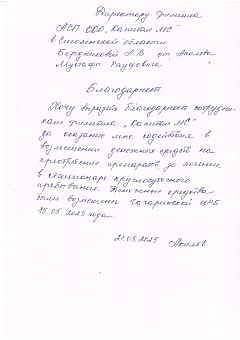 Директору филиала
АСП ООО „Капитал МС"
в Смоленской области
Бердниковой А.В. от Акилова
Мустафо Рауфовича
Благодарность
Хочу выразить благодарность сотрудни-
кам филиала „Капитал МС"
за оказание мне содействия в
возмещении денежных средств на
приобретение препарата за лечение
в стационаре круглосуточного
пребывания. Денежные средства
были возмещены Гагаринской ЦРБ
15.05.2025 года.
21.05.2025 Акилов